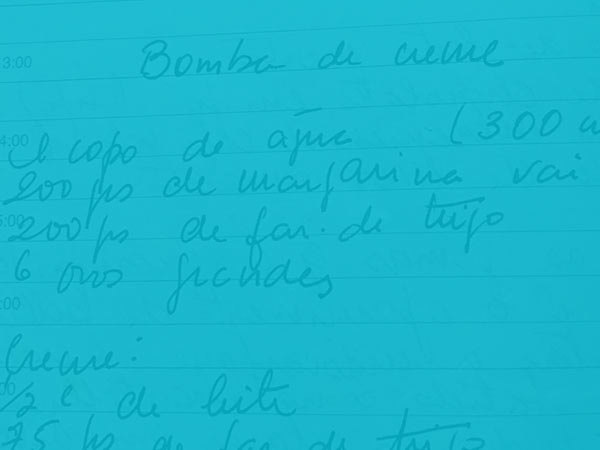 3:00
Bomba de creme
4:00
1 copo de água (300
200 grs de margarina vai
5:00
200 grs de far. de trigo
6 ovos grandes
:00
Creme:
00
1/2 l de leite
75 grs de far de trigo